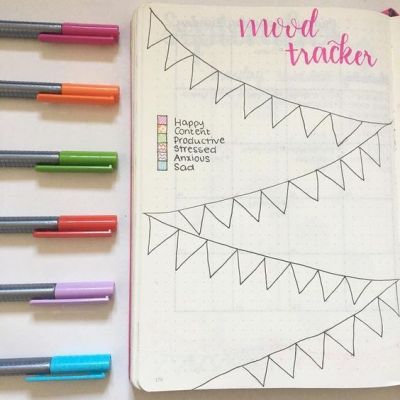 mood
tracker
Happy
Content
Productive
Stressed
Anxious
Sad